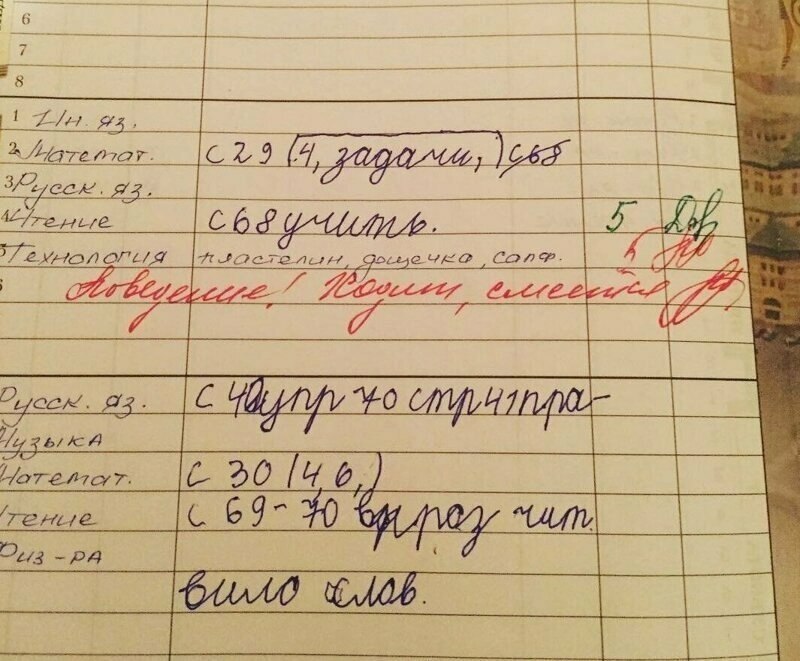 6
7
8
1 Ин. яз.
2 Математ. с 29 (4, задачи,) с68
3 Русск. яз.
4 Чтение с68 учить. 5
5 Технология пластелин, дощечка, салф. 5
6 Поведение! Ходит, смеётся
Русск. яз. с 40 упр 70 стр 41 пра-
Музыка
Математ. с 30 (4, 6,)
Чтение с 69-70 выраз чит.
Физ-ра
вило слов.